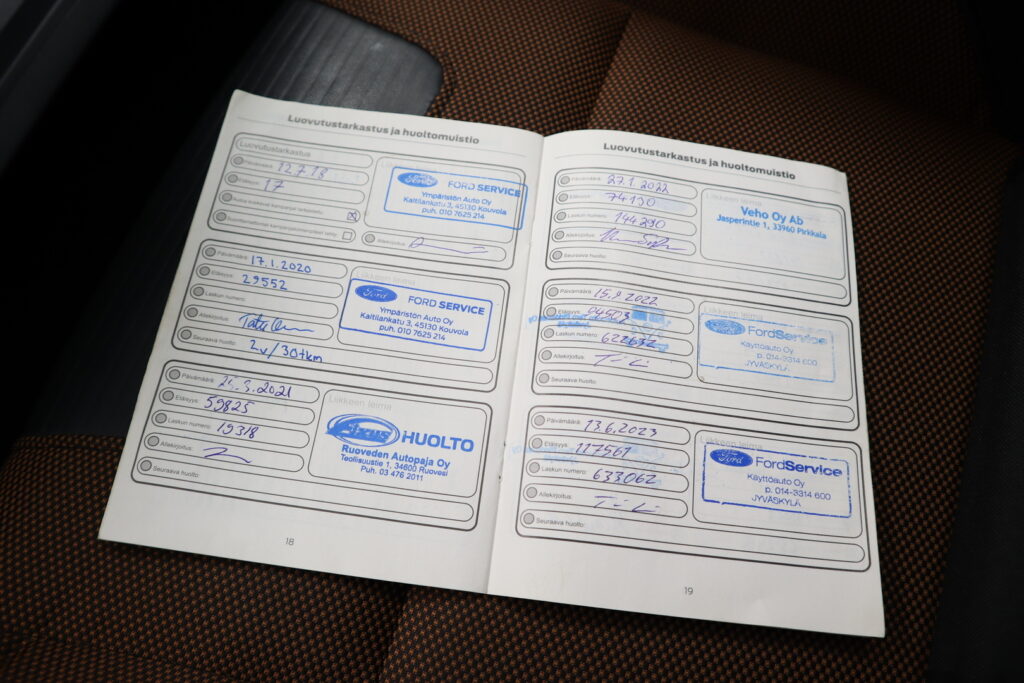 Luovutustarkastus ja huoltomuistio
Luovutustarkastus
Päivämäärä: 12.7.18
Etäisyys: 17
Allekirjoitus:
Ford FORD SERVICE
Ympäristön Auto Oy
Kaitilankatu 3, 45130 Kouvola
puh. 010 7625 214
Päivämäärä: 17.1.2020
Etäisyys: 29552
Laskun numero:
Allekirjoitus:
Seuraava huolto: 2v/30tkm
Liikkeen leima
Ford FORD SERVICE
Ympäristön Auto Oy
Kaitilankatu 3, 45130 Kouvola
puh. 010 7625 214
Päivämäärä: 25.3.2021
Etäisyys: 59825
Laskun numero: 19318
Allekirjoitus:
Seuraava huolto:
Liikkeen leima
HUOLTO
Ruoveden Autopaja Oy
Teollisuustie 1, 34600 Ruovesi
Puh. 03 476 2011
18
Luovutustarkastus ja huoltomuistio
Päivämäärä: 27.1.2022
Etäisyys: 74130
Laskun numero: 144290
Allekirjoitus:
Seuraava huolto:
Liikkeen leima
Veho Oy Ab
Jasperintie 1, 33960 Pirkkala
Päivämäärä: 15.9.2022
Etäisyys: 94503
Laskun numero: 622632
Allekirjoitus:
Seuraava huolto:
Liikkeen leima
Ford FordService
Käyttöauto Oy
p. 014-3314 600
JYVÄSKYLÄ
Päivämäärä: 13.6.2023
Etäisyys: 117561
Laskun numero: 633062
Allekirjoitus:
Seuraava huolto:
Liikkeen leima
Ford FordService
Käyttöauto Oy
p. 014-3314 600
JYVÄSKYLÄ
19